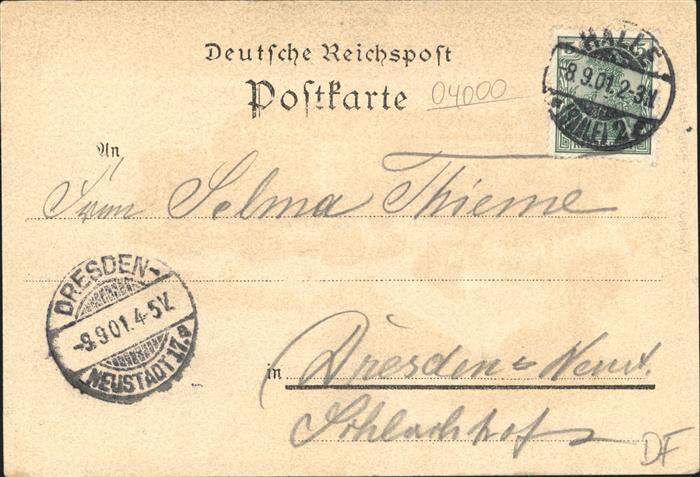 Deutsche Reichspost
Postkarte
04000
HALLE
8 9.01. 2-3N.
(SAALE) 2 c
An
Frau Selma Thieme
DRESDEN-
-9.9.01. 4-5V.
NEUSTADT 17.e
in Dresden=Neust.
Schlachthof
DF